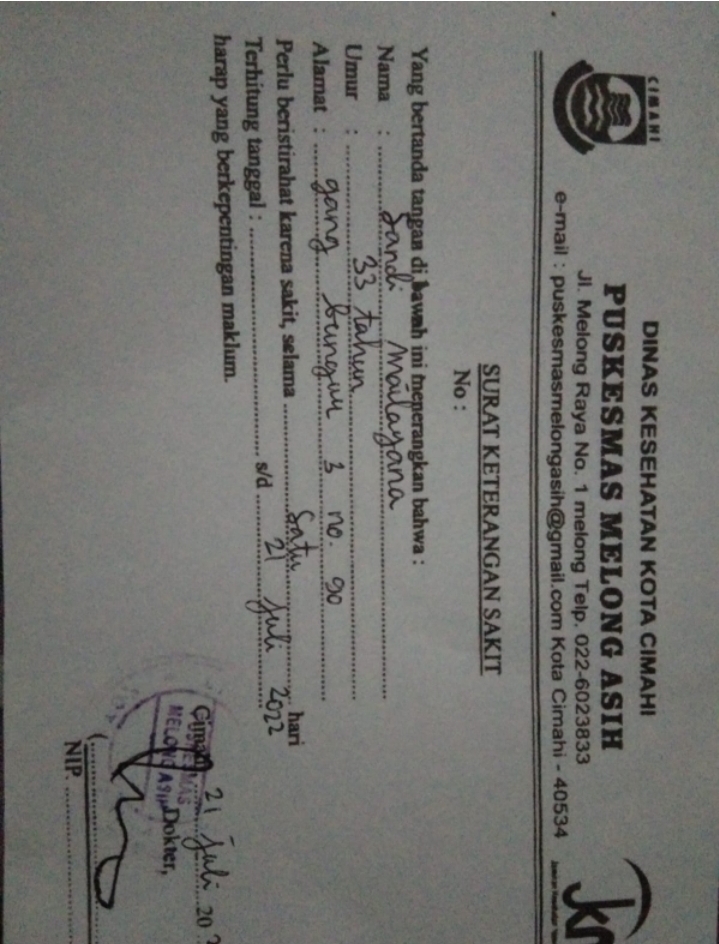 CIMAHI
DINAS KESEHATAN KOTA CIMAHI
PUSKESMAS MELONG ASIH
Jl. Melong Raya No. 1 melong Telp. 022-6023833
e-mail : puskesmasmelongasih@gmail.com Kota Cimahi - 40534
SURAT KETERANGAN SAKIT
No :
Yang bertanda tangan di bawah ini menerangkan bahwa :
Nama : Sandi Mailayana
Umur : 33 tahun
Alamat : gang bungur 3 no. 90
Perlu beristirahat karena sakit, selama satu hari
Terhitung tanggal : s/d 21 Juli 2022
harap yang berkepentingan maklum.
Cimahi, 21 Juli 20
PUSKESMAS
MELONG ASIH
Dokter,
NIP.